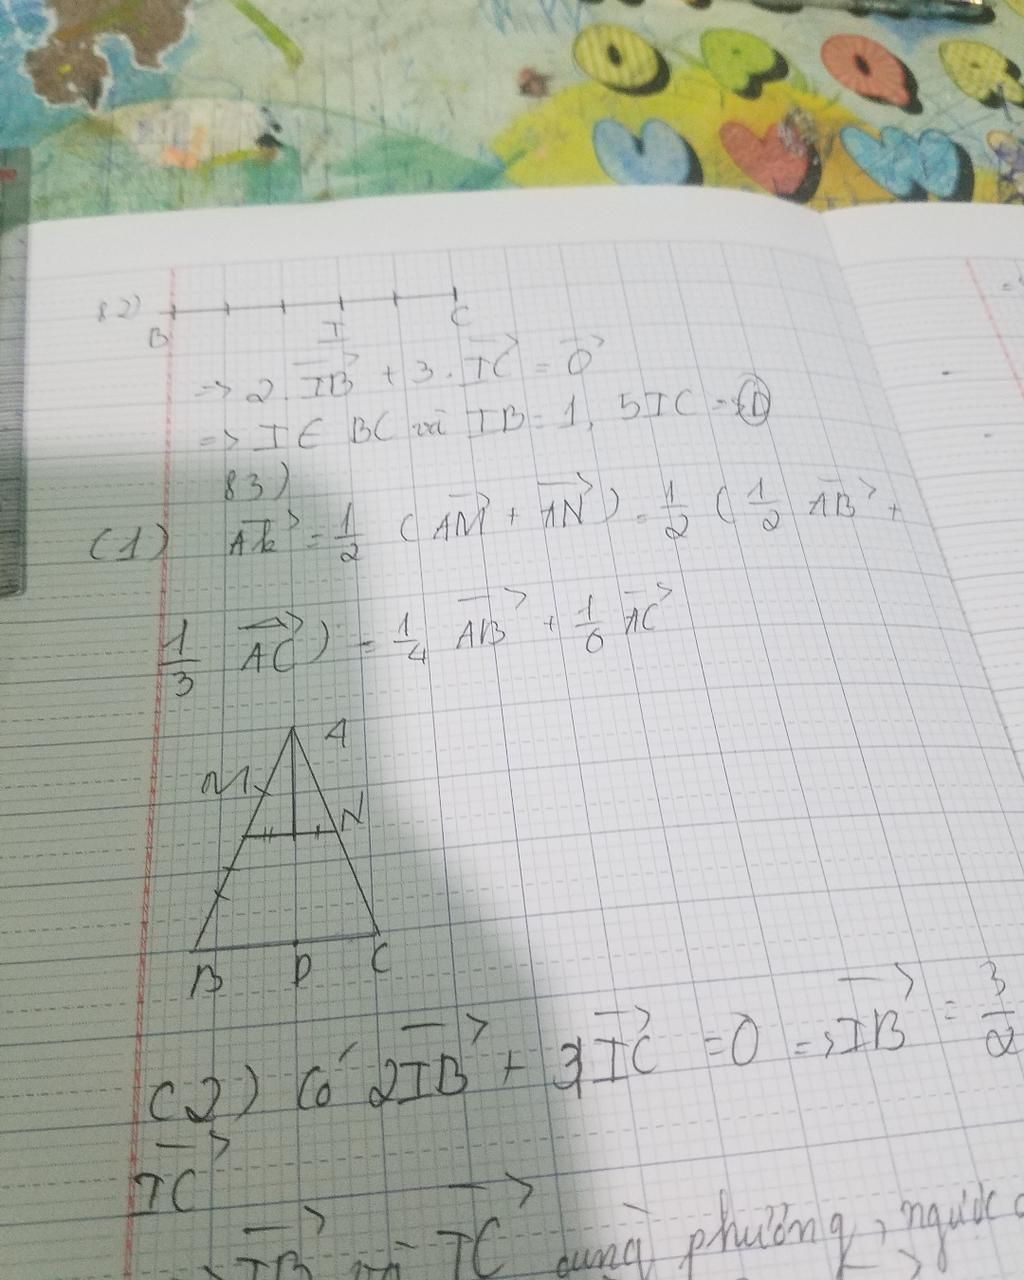 82)
B I C
=> 2. IB + 3. IC = 0
=> I ∈ BC và IB = 1, 5IC = D
83)
(1) AK = 1/2 (AM + AN) = 1/2 (1/2 AB +
1/3 AC) = 1/4 AB + 1/6 AC
A
M
N
B D C
C2) Có 2IB + 3IC = 0 => IB = 3/2
IC
IB và IC cùng phương, ngược